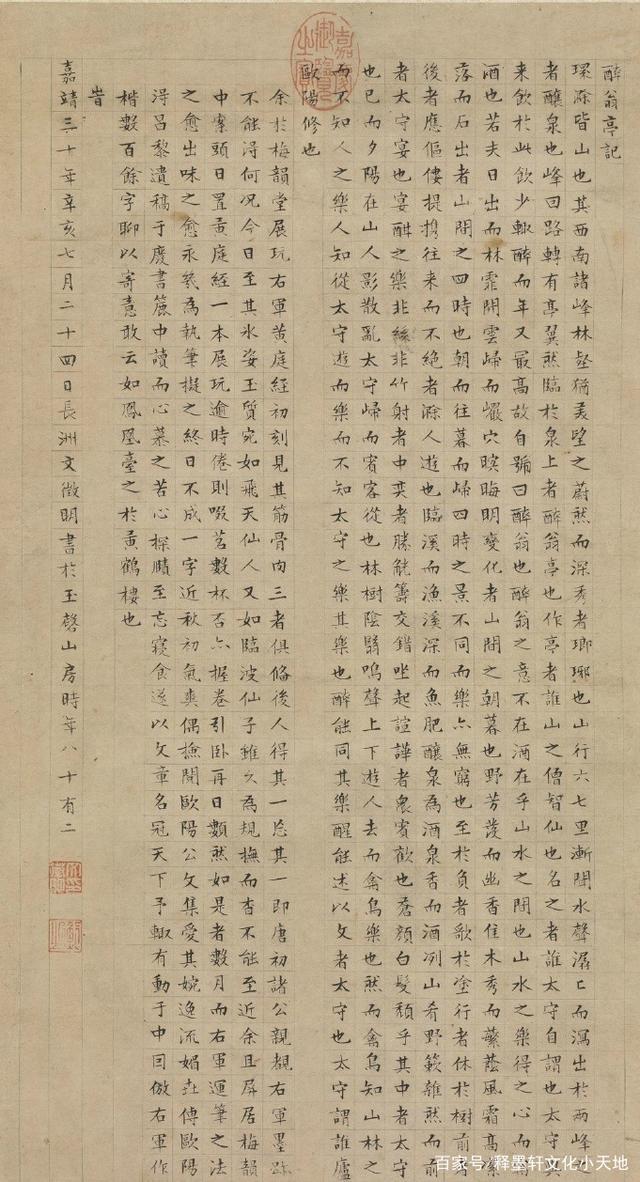 醉翁亭記
環滁皆山也其西南諸峰林壑猶美望之蔚然而深秀者瑯琊也山行六七里漸聞水聲潺〻而瀉出於兩峰之
者釀泉也峰回路轉有亭翼然臨於泉上者醉翁亭也作亭者誰山之僧智仙也名之者誰太守自謂也太守與
來飲於此飲少輒醉而年又最高故自號曰醉翁也醉翁之意不在酒在乎山水之間也山水之樂得之心而寓
酒也若夫日出而林霏開雲歸而巖穴暝晦明變化者山間之朝暮也野芳發而幽香佳木秀而蘩蔭風霜高潔
落而石出者山間之四時也朝而往暮而歸四時之景不同而樂亦無窮也至於負者歌於塗行者休於樹前者
後者應傴僂提攜往來而不絕者滁人遊也臨溪而漁溪深而魚肥釀泉為酒泉香而酒冽山肴野蔌雜然而前
者太守宴也宴酣之樂非絲非竹射者中奕者勝觥籌交錯坐起諠譁者衆賓歡也蒼顏白髮頹乎其中者太守
也已而夕陽在山人影散亂太守歸而賓客從也林樹陰翳鳴聲上下遊人去而禽鳥樂也然而禽鳥知山林之
而不知人之樂人知從太守遊而樂而不知太守之樂其樂也醉能同其樂醒能述以文者太守也太守謂誰廬
歐陽修也
余於梅韻堂展玩右軍黃庭經初刻見其筋骨肉三者俱備後人得其一忘其一即唐初諸公親覩右軍墨跡
不能淂何況今日至其氷姿玉質宛如飛天仙人又如臨波仙子雖久為規撫而杳不能至近余且屏居梅韻
中案頭日置黃庭經一本展玩逾時倦則啜茗數杯否亦握卷引卧再日顙然如是者數月而右軍運筆之法
之愈出味之愈永幾為執筆擬之終日不成一字近秋初氣爽偶撿閱歐陽公文集愛其婉逸流媚世傳歐陽
淂昌黎遺稿于廢書簏中讀而心慕之苦心探賾至忘寢食遂以文章名冠天下予輒有動于中因倣右軍作
楷數百餘字聊以寄意敢云如鳳凰臺之於黃鶴樓也
旹
嘉靖三十年辛亥七月二十四日長洲文徵明書於玉磬山房時年八十有二
嘉慶御覽之寶
百家号/释墨轩文化小天地